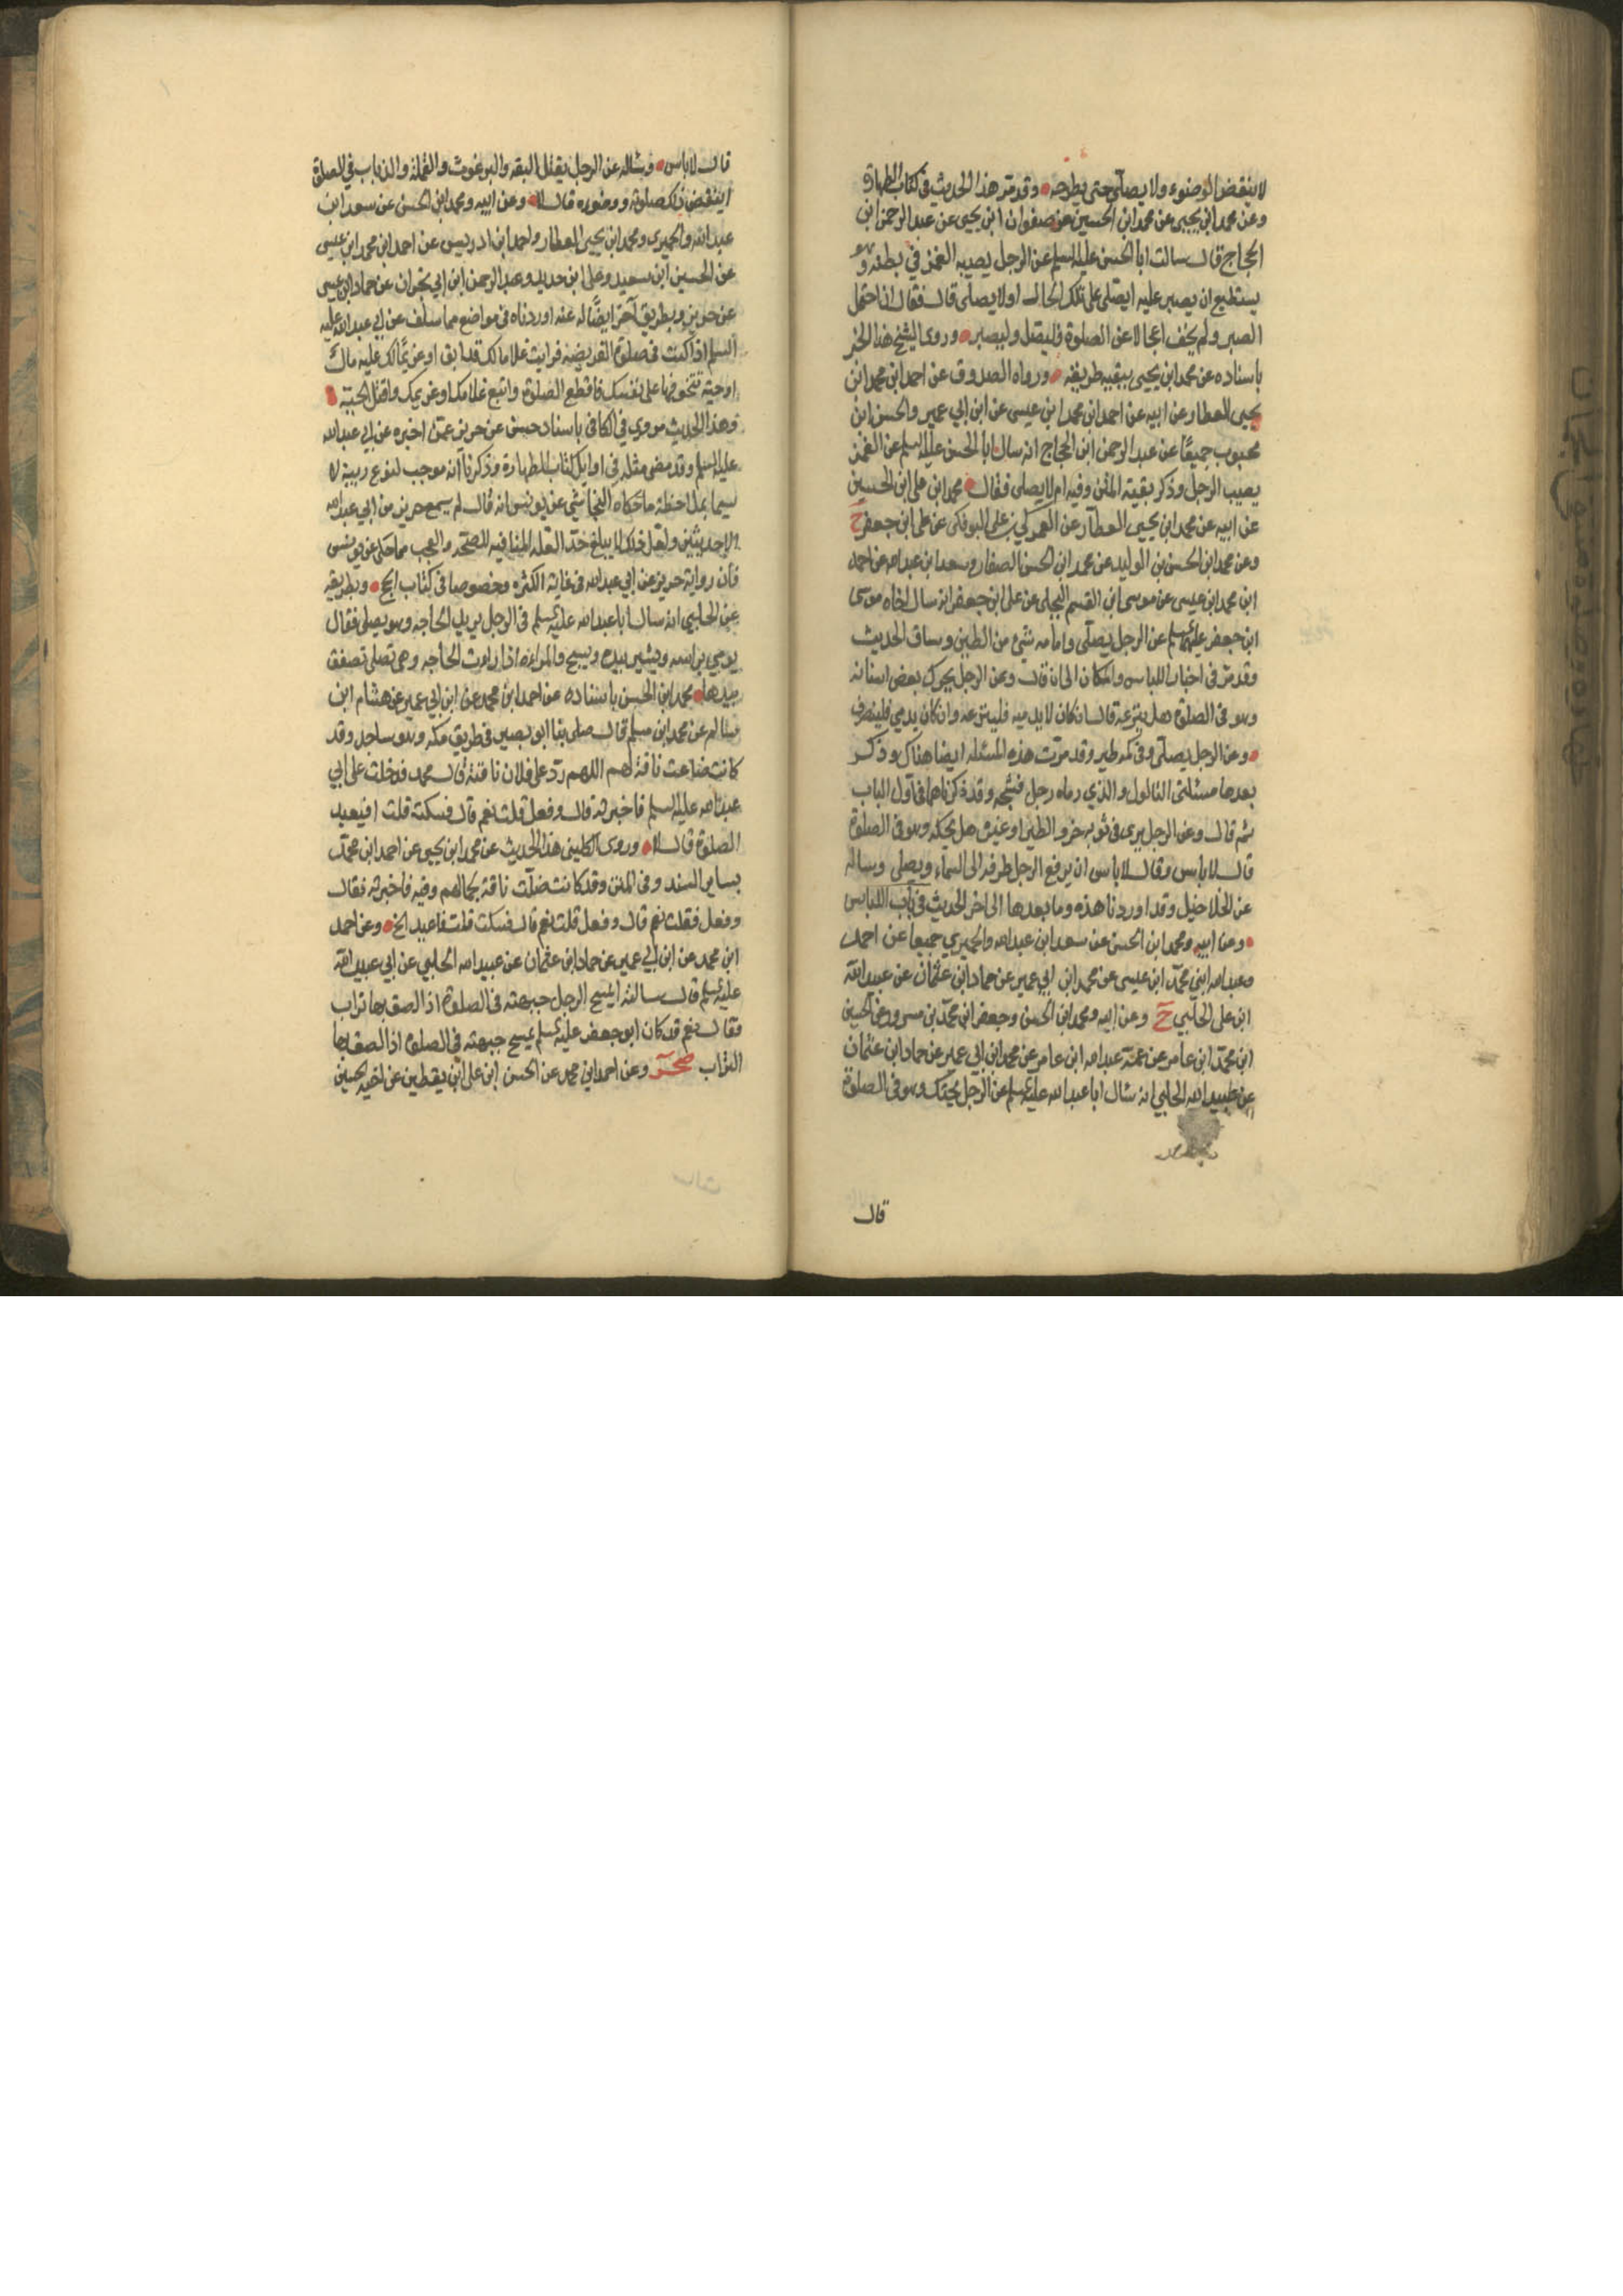 لا ينقض الوضوء ولا يصلى حتى يطرحه وقد مر هذا الحديث في كتاب الطهارة
وعن محمد ابن يحيى عن محمد ابن الحسين عن صفوان ابن يحيى عن عبد الرحمن ابن
الحجاج قال سالت ابا الحسن عليه السلم عن الرجل يصيبه الغمز في بطنه وهو
يستطيع ان يصبر عليه ايصلى على تلك الحال اولا يصلى قال فقال ان احتمل
الصبر ولم يخف اعجالا عن الصلوة فليصل وليصبر وروى الشيخ هذا الخبر
باسناده عن محمد ابن يحيى ببقية طريقه ورواه الصدوق عن احمد ابن محمد ابن
يحيى العطار عن ابيه عن احمد ابن محمد ابن عيسى عن ابن ابي عمير والحسن ابن
محبوب جميعًا عن عبد الرحمن ابن الحجاج انه سال ابا الحسن عليه السلم عن الغمز
يصيب الرجل وذكر بقية المتن وفيه ام لا يصلى فقال محمد ابن على ابن الحسين
عن ابيه عن محمد ابن يحيى العطار عن العمركي بن على البوفكى عن على ابن جعفر ح
وعن محمد ابن الحسن بن الوليد عن محمد ابن الحسن الصفار وسعد ابن عبد الله عن احمد
ابن محمد ابن عيسى عن موسى ابن القسم البجلى عن على ابن جعفر انه سال اخاه موسى
ابن جعفر عليهما السلم عن الرجل يصلى وامامه شئ من الطين وساق الحديث
وقد مر فى اخبار اللباس والمكان الى ان قال وعن الرجل يحرك بعض اسنانه
وهو فى الصلوة هل ينزعه قال ان كان لا يدميه فلينزعه وان كان يدمي فلينصرف
وعن الرجل يصلى وفى كمه طير وقد مرت هذه المسئله ايضا هناك وذكر
بعدها مسئلتى الثالول والذي رماه رجل فشجه وقد ذكرناهما فى اول الباب
ثم قال وعن الرجل يرى فى ثوبه خرو الطير او غيره هل يحكه وهو فى الصلوة
قال لا باس وقال لا باس ان يرفع الرجل طرفه الى السماء ويصلى وساله
عن الخلاخيل وقد اوردنا هذه وما بعدها الى اخر الحديث في باب اللباس
وعن ابيه ومحمد ابن الحسن عن سعد ابن عبد الله والحميري جميعا عن احمد
وعبد الله ابني محمد ابن عيسى عن محمد ابن ابي عمير عن حماد ابن عثمان عن عبيد الله
ابن على الحلبي ح وعن ابيه ومحمد ابن الحسن وجعفر ابن محمد بن مسرور عن الحسين
ابن محمد ابن عامر عن عمه عبد الله ابن عامر عن محمد ابن ابي عمير عن حماد ابن عثمان
عن عبيد الله الحلبي انه سال ابا عبد الله عليه السلم عن الرجل يحتك وهو فى الصلوة
قال
قال لا باس وساله عن الرجل يقتل البقه والبرغوث والقمله والذباب في الصلوة
اينقض ذلك صلوته ووضوءه قال لا وعن ابيه ومحمد ابن الحسن عن سعد ابن
عبد الله والحميري ومحمد ابن يحيى العطار واحمد ابن ادريس عن احمد ابن محمد ابن عيسى
عن الحسين ابن سعيد وعلى ابن حديد وعبد الرحمن ابن ابي نجران عن حماد ابن عيسى
عن حريز وبطريق آخر ايضًا له عنه اوردناه فى مواضع مما سلف عن ابي عبد الله عليه
السلم اذا كنت فى صلوة الفريضه فرايت غلاما لك قد ابق او غريما لك عليه مال
او حية تتخوفها على نفسك فاقطع الصلوة واتبع غلامك او غريمك واقتل الحية
وهذا الحديث مروى في الكافى باسناد حسن عن حريز عمن اخبره عن ابي عبد الله
عليه السلم وقد مضى مثله فى اوايل كتاب الطهارة وذكرنا انه موجب لنوع ريبة لا
سيما بملاحظة ما حكاه النجاشي عن يونس انه قال لم يسمع حريز من ابي عبد الله
الا حديثين ولعل ذلك لا يبلغ حد العلة المنافيه للصحة والعجب مما حكى عن يونس
فان رواية حريز عن ابي عبد الله فى غاية الكثره وخصوصا فى كتاب الحج وبطريقه
عن الحلبي انه سال ابا عبد الله عليه السلم فى الرجل يريد الحاجه وهو يصلى فقال
يومي براسه ويشير بيده ويسبح والمراة اذا ارادت الحاجه وهى تصلى تصفق
بيدها محمد ابن الحسن باسناده عن احمد ابن محمد عن ابن ابي عمير عن هشام ابن
سالم عن محمد ابن مسلم قال صلى بنا ابو بصير فى طريق مكه وهو ساجد وقد
كانت ضاعت ناقة لهم اللهم رد على فلان ناقته قال محمد فدخلت على ابي
عبد الله عليه السلم فاخبرته قال وفعل قلت نعم قال فسكت قلت افيعيد
الصلوة قال لا وروى الكليني هذا الحديث عن محمد ابن يحيى عن احمد ابن محمد
بساير السند وفى المتن وقد كانت ضلت ناقة بجمالهم وفيه فاخبرته فقال
وفعل فقلت نعم قال وفعل قلت نعم قال فسكت قلت فاعيد الخ وعن احمد
ابن محمد عن ابن ابي عمير عن حماد ابن عثمان عن عبيد الله الحلبي عن ابي عبد الله
عليه السلم قال سالته ايمسح الرجل جبهته فى الصلوة اذا لصق بها تراب
فقال نعم قد كان ابو جعفر عليه السلم يمسح جبهته فى الصلوة اذا لصق بها
التراب صحر وعن احمد ابن محمد عن الحسن ابن على ابن يقطين عن اخيه الحسين